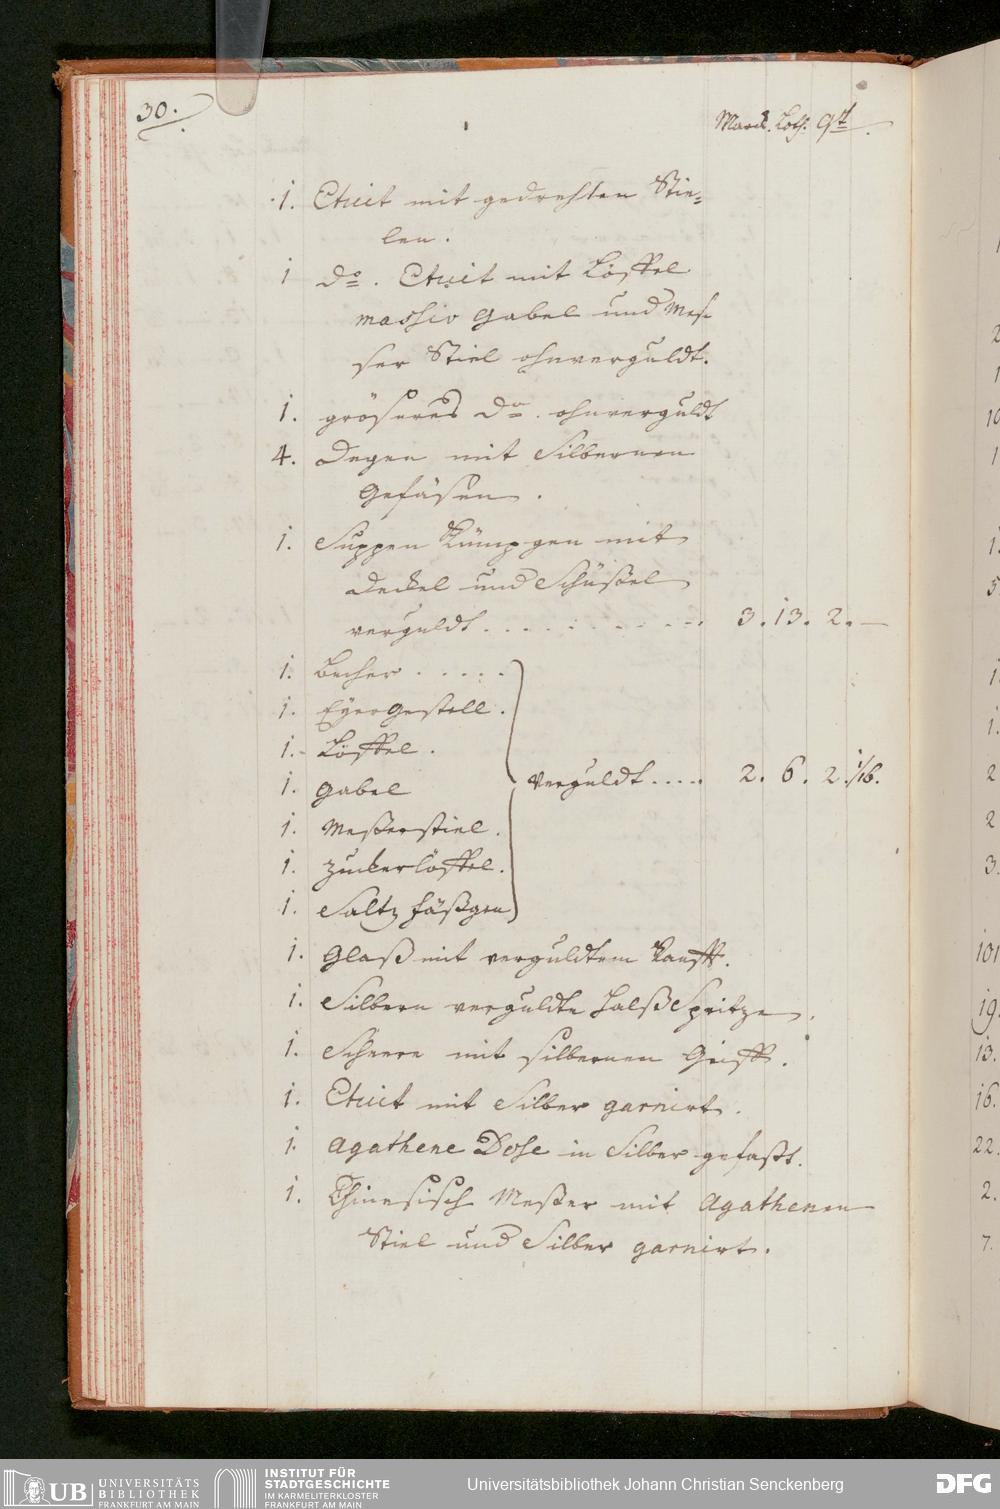 30.
Marck. Loth. qt
1. Etuit mit gedrehten Stie=
len.
1 do. Etuit mit Löffel
massiv Gabel und Mes
ser Stiel ohnverguldt.
1. gröseres do. ohnverguldt
4. Degen mit Silbernen
Gefäsen.
1. Suppen Kümpgen mit
Deckel und Schüßel
verguldt . . . . . . . . . . 3. 13. 2. —
1. Becher . . . . .
1. Eyer Gestell.
1. Löffel.
1. Gabel verguldt . . . . 2. 6. 2. 1/16.
1. Meßerstiel.
1. Zuckerlöffel.
1. Saltz fäßgen
1. Glaß mit verguldtem Ranfft.
1. Silbern verguldte HalßSpritze.
1. Scheere mit silbernen Griff.
1. Etuit mit Silber garnirt.
1. Agathene Dose in Silber gefaßt.
1. Chinesisch Meßer mit Agathenen
Stiel und Silber garnirt.
UB UNIVERSITÄTS
BIBLIOTHEK
FRANKFURT AM MAIN
INSTITUT FÜR
STADTGESCHICHTE
IM KARMELITERKLOSTER
FRANKFURT AM MAIN
Universitätsbibliothek Johann Christian Senckenberg
DFG